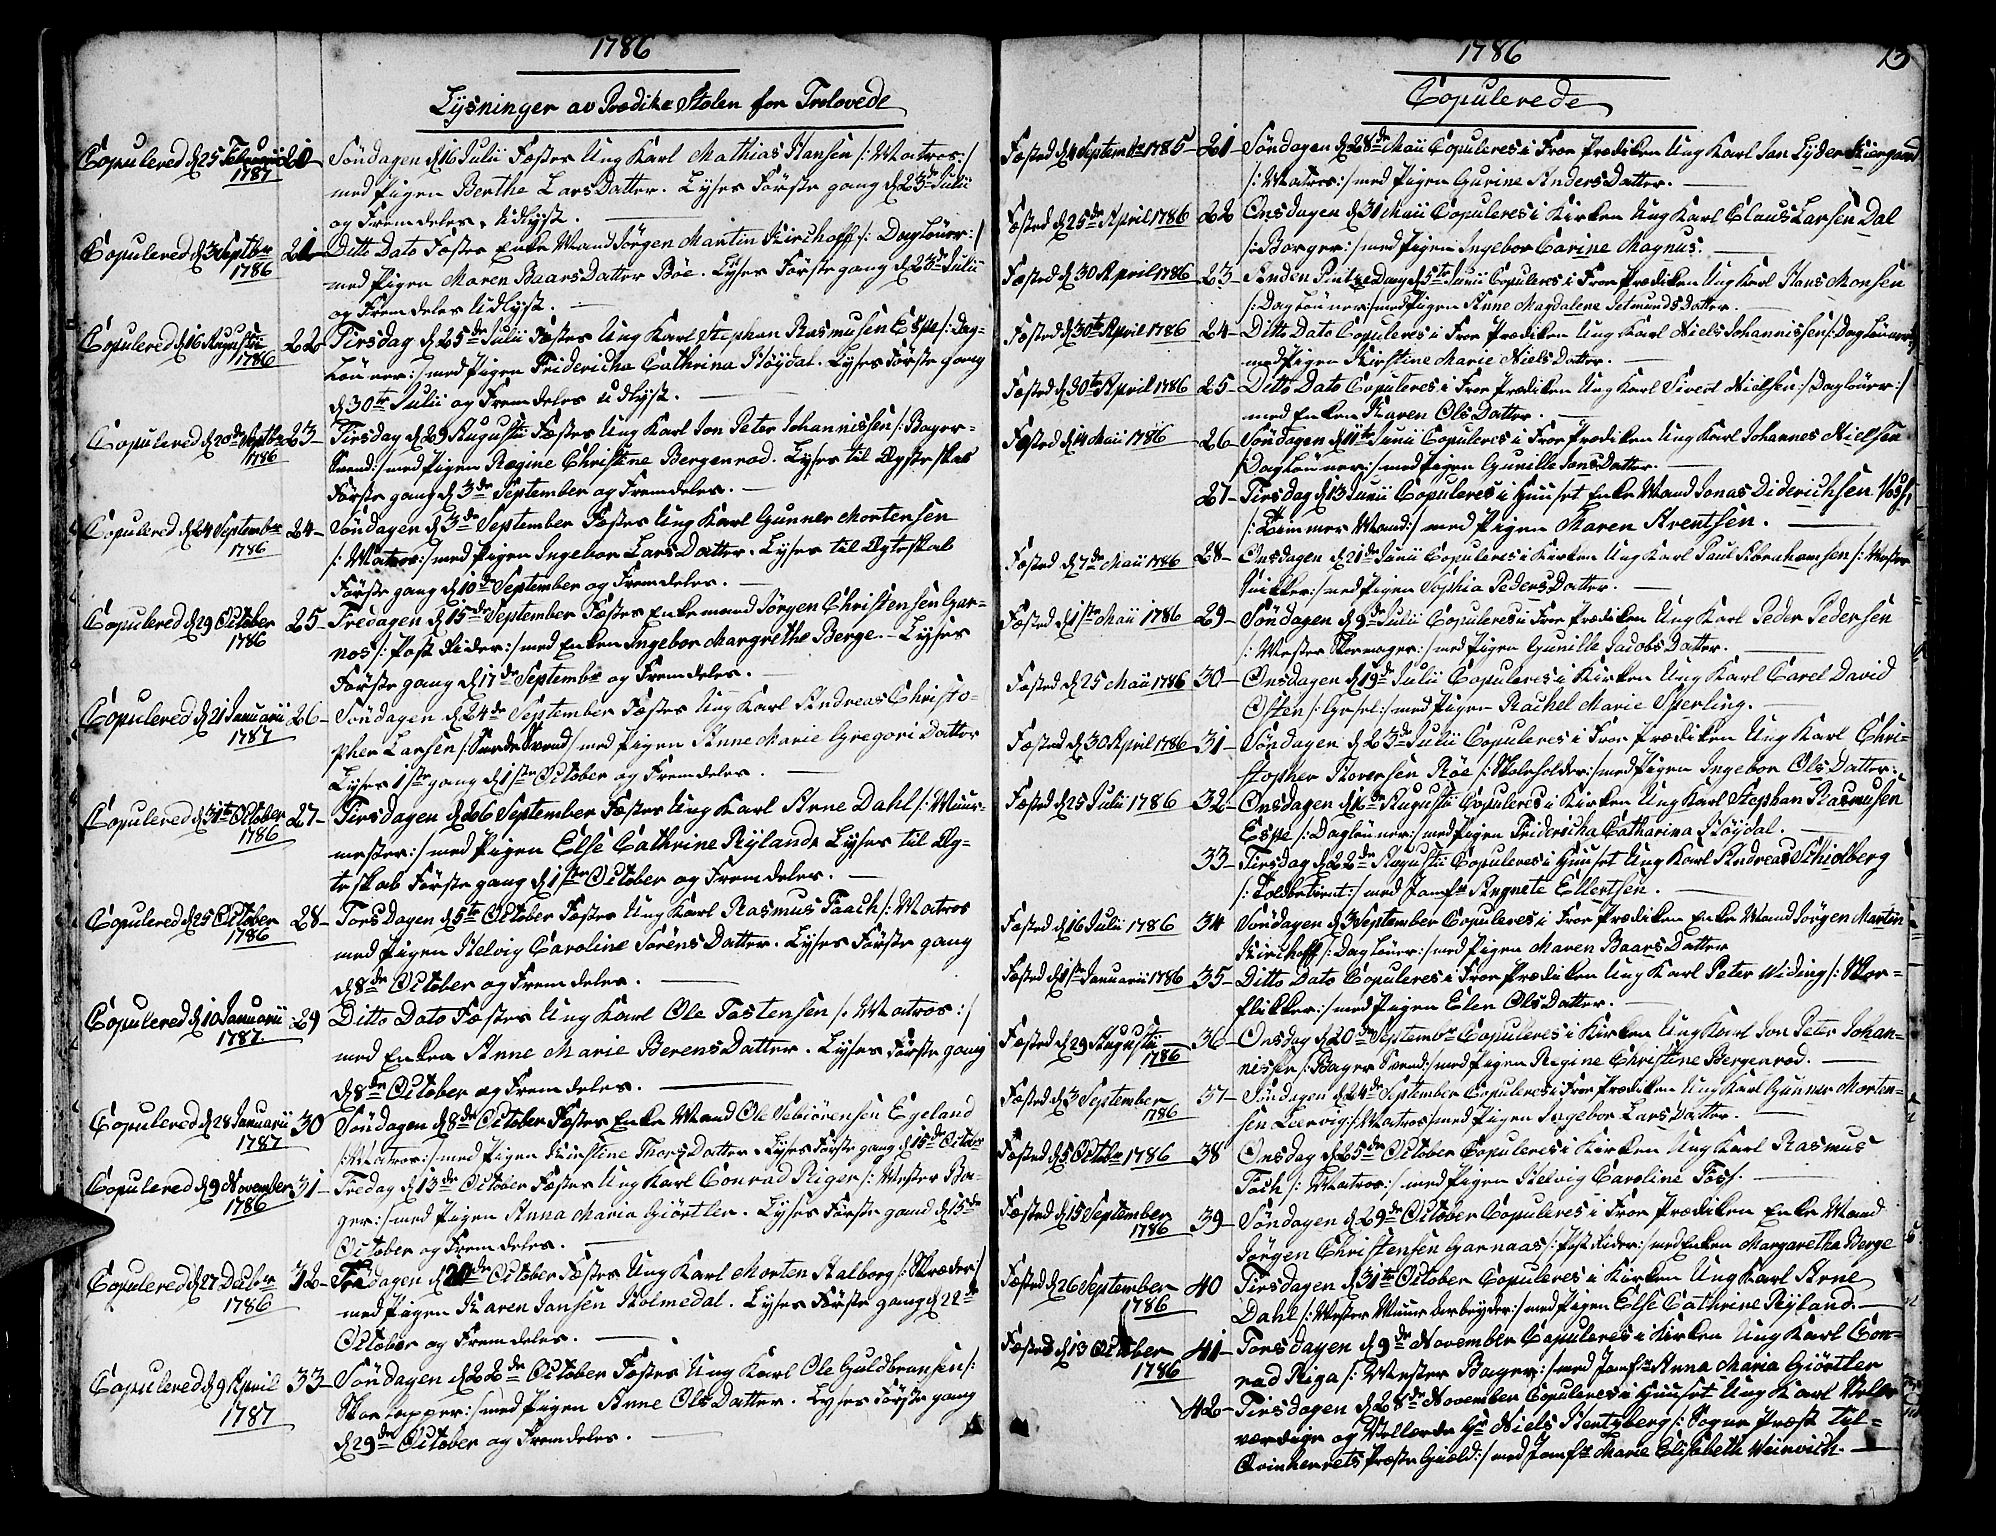 1786
Lysninger av Prædike Stolen for Trolovede
Copulered d 25 Februarii 1787
20 Søndagen d 16 Julii Fæstes Ung Karl Mathias Hansen /: Matros :/
med Pigen Berthe Lars Datter. Lyses Første gang d 23de Julii
og Fremdeles, Udlyst.
Copulered d 3 Septbr 1786
21 Ditto Dato Fæstes Enke Mand Jørgen Martin Kirchoff /: Dagløner :/
med Pigen Maren Baars Datter Bøe. Lyses Første gang d 23de Julii
og Fremdeles Udlyst.
Copulered d 16 Augustii 1786
22 Tirsdag d 25de Julii Fæstes Ung Karl Stephan Rasmusen Espe /: Dag-
Lønner :/ med Pigen Fridericha Cathrina Høydal. Lyses Første gang
d 30te Julii og Fremdeles Udlyst.
Copulered d 20de Septbr 1786
23 Tirsdag d 29 Augustii Fæstes Ung Karl Jon Peter Johannissen /: Bager-
Svend :/ med Pigen Regine Christine Bergenrod. Lyses til Ægteskab
Første gang d 3de September og Fremdeles.
Copulered d 24 Septembr 1786
24 Søndagen d 3de September Fæstes Ung Karl Gunner Mortensen
/: Matros :/ med Pigen Ingebor Lars Datter. Lyses til Ægteskab
Første gang d 10de September og Fremdeles.
Copulered d 29 October 1786
25 Fredagen d 15de September Fæstes Enkemand Jørgen Christensen Gar-
nos /: Post Rider :/ med Enken Ingebor Margrethe Berge. Lyses
Første gang d 17de Septembr og Fremdeles.
Copulered d 21 Januarii 1787
26 Søndagen d 24de September Fæstes Ung Karl Andreas Christo-
pher Larsen /: Svend / med Pigen Anne Marie Gregori Datter
Lyses 1ste gang d 1ste October og Fremdeles.
Copulered d 31te October 1786
27 Tirsdagen d 26 September Fæstes Ung Karl Arne Dahl /: Muur-
mester :/ med Pigen Else Cathrine Ryland, Lyses til Æg-
teskab Første gang d 1ste October og Fremdeles.
Copulered d 25 October 1786
28 Torsdagen d 5te October Fæstes Ung Karl Rasmus Taach /: Matros
med Pigen Helvig Caroline Sørens Datter. Lyses Første gang
d 8de October og Fremdeles.
Copulered d 10 Januarii 1787
29 Ditto Dato Fæstes Ung Karl Ole Tostensen /: Matros :/
med Enken Anne Marie Berens Datter. Lyses Første gang
d 8de October og Fremdeles.
Copulered d 28 Januarii 1787
30 Søndagen d 8de October Fæstes Enke Mand Ole Sebiørensen Egeland
/: Matros :/ med Pigen Kirstine Thors Datter. Lyses Første gang d 15de October
Copulered d 9 November 1786
31 Fredag d 13de October Fæstes Ung Karl Conrad Riger /: Mester Ba-
ger :/ med Pigen Anna Maria Giørtler. Lyses Første gand d 15de
October og Fremdeles.
Copulered d 27 Decbr 1786
32 Fredagen d 20de October Fæstes Ung Karl Morten Aalborg /: Skræder /
med Pigen Karen Jansen Holmedal. Lyses Første gang d 22de
October og Fremdeles.
Copulered d 9 April 1787
33 Søndagen d 22de October Fæstes Ung Karl Ole Guldbransen /:
med Pigen Anne Ols Datter. Lyses Første gang
d 29de October og Fremdeles.
1786
13
Copulerede
Fæsted d 4 Septembr 1785
21 Søndagen d 28de Maii Copuleres i Froe Prædiken Ung Karl Jan Lyder Kiergaard
/: Matros :/ med Pigen Gurine Anders Datter.
Fæsted d 25de April 1786
22 Onsdagen d 31 Maii Copuleres i Kirken Ung Karl Claus Larsen Dal
/: Borger :/ med Pigen Ingebor Carine Magnus.
Fæsted d 30 April 1786
23 Anden Pintze Dag d 5te Junii Copuleres i Froe Prædiken Ung Karl Hans Monsen
/: Daglønner :/ med Pigen Anne Magdalene Setmunds Datter.
Fæsted d 30te April 1786
24 Ditto Dato Copuleres i Froe Prædiken Ung Karl Niels Johannissen /: Daglønner
med Pigen Kirstine Marie Niels Datter.
Fæsted d 30te April 1786
25 Ditto Dato Copuleres i Froe Prædiken Ung Karl Sivert Nielsen :/ Daglønner :/
med Enken Karen Ols Datter.
Fæsted d 14 Maii 1786
26 Søndagen d 11te Junii Copuleres i Froe Prædiken Ung Karl Johannes Nielsen
/: Daglønner :/ med Pigen Gunille Jans Datter.
27 Tirsdag d 13 Junii Copuleres i Huuset Enke Mand Jonas Diderichsen
/: Tømmer Mand :/ med Pigen Karen Arentsen.
Fæsted d 7de Maii 1786
28 Onsdagen d 21de Junii Copuleres i Kirken Ung Karl Paul Abrahamsen /: Mester
Snikker :/ med Pigen Sophia Peders Datter.
Fæsted d 1ste Maii 1786
29 Søndagen d 9de Julii Copuleres i Froe Prædiken Ung Karl Peder Pedersen
/: Mester Skomager :/ med Pigen Gunille Jacobs Datter.
Fæsted d 25 Maii 1786
30 Onsdagen d 19de Julii Copuleres i Kirken Ung Karl Carel David
Osten /: Gesel :/ med Pigen Rachel Marie Sperling.
Fæsted d 30 April 1786
31 Søndagen d 23de Julii Copuleres i Froe Prædiken Ung Karl Chri-
stopher Hoversen Røe /: Skoleholder :/ med Pigen Ingebor Ols Datter.
Fæsted d 25 Julii 1786
32 Onsdagen d 16de Augusti Copuleres i Kirken Ung Karl Stephan Rasmusen
Espe /: Daglønner :/ med Pigen Fridericha Catharina Høydal.
33 Tirsdag d 22de Augustii Copuleres i Huuset Ung Karl Andreas Schiolberg
/: Toldbetient :/ med Jomfr Angnete Ellertsen.
Fæsted d 16 Julii 1786
34 Søndagen d 3 September Copuleres i Froe Prædiken Enke Mand Jørgen Martin
Kirchoff /: Dagløner :/ med Pigen Maren Baars Datter
Fæsted d 1ste Januarii 1786
35 Ditto Dato Copuleres i Froe Prædiken Ung Karl Peter Widing /: Skoe-
flikker :/ med Pigen Elen Ols Datter.
Fæsted d 29 Augustii 1786
36 Onsdag d 20de Septembr Copuleres i Kirken Ung Karl Jon Peter Johan-
nissen /: Bager Svend :/ med Pigen Regine Christine Bergenrod.
Fæsted d 3 September 1786
37 Søndagen d 24de September Copuleres i Froe Prædiken Ung Karl Gunner Morten-
sen Leervig :/ Matros / med Pigen Ingebor Lars Datter.
Fæsted d 5 Octbr 1786
38 Onsdag d 25de October Copuleres i Kirken Ung Karl Rasmus
Toch /: Matros :/ med Pigen Helvig Caroline Foss.
Fæsted d 15 September 1786
39 Søndagen d 29de October Copuleres i Froe Prædiken Enke Mand
Jørgen Christensen Garnaas /: Post Rider :/ med Enken Margaretha Berge
Fæsted d 26 September 1786
40 Tirsdagen d 31te October Copuleres i Kirken Ung Karl Arne
Dahl /: Mester Muur Arbeyder :/ med Pigen Else Cathrine Ryland.
Fæsted d 13 October 1786
41 Torsdagen d 9de November Copuleres i Kirken Ung Karl Con-
rad Riga /: Mester Bager :/ med Jomfr Anna Maria Giørtler
42 Tirsdagen d 28de November Copuleres i Huuset Ung Karl Vel-
værdige og Vellærde Hr Niels Hertzberg /: Sogne Præst til
Qvinherrets Præste Giæld :/ med Jomfr Marie Elisabeth Heinrich.